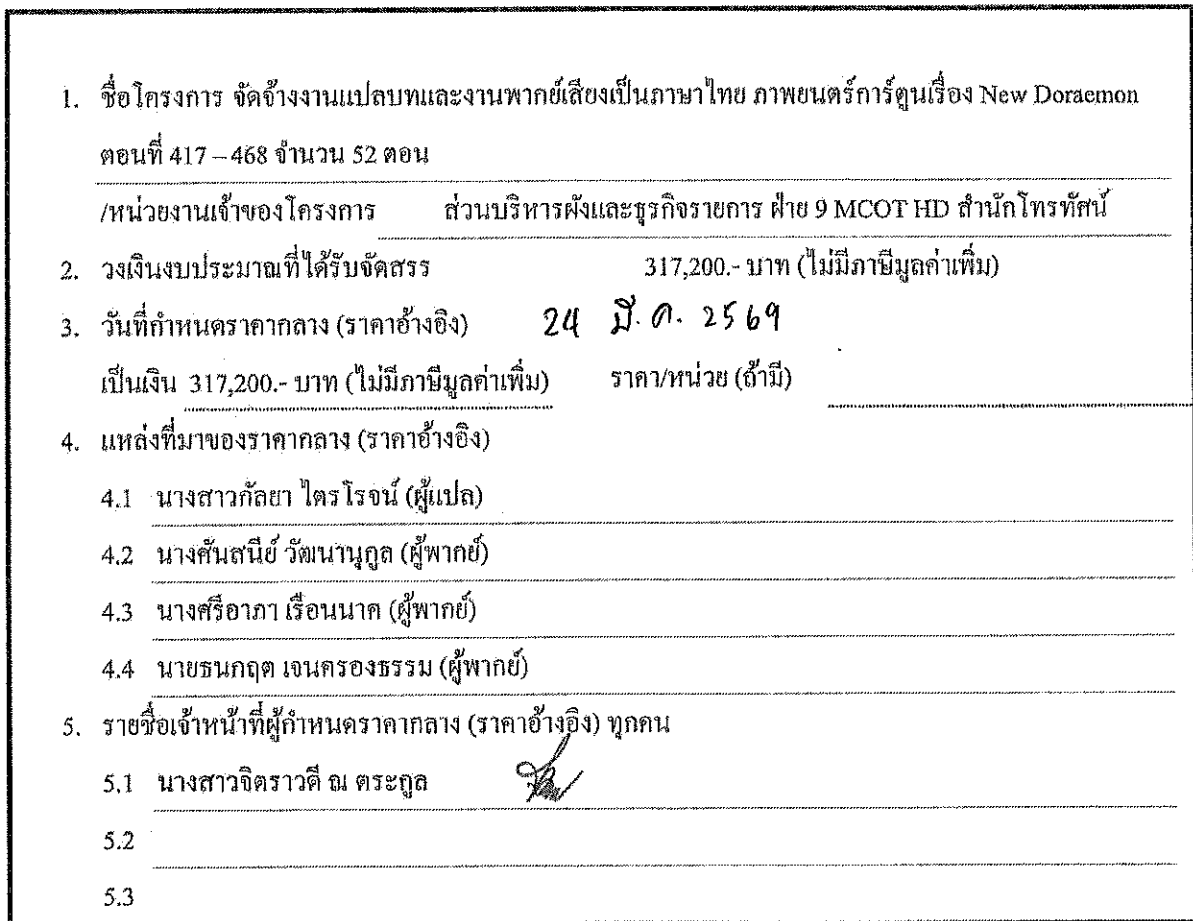 1. ชื่อโครงการ จัดจ้างงานแปลบทและงานพากย์เสียงเป็นภาษาไทย ภาพยนตร์การ์ตูนเรื่อง New Doraemon
ตอนที่ 417 – 468 จำนวน 52 ตอน
/หน่วยงานเจ้าของโครงการ ส่วนบริหารผังและธุรกิจรายการ ฝ่าย 9 MCOT HD สำนักโทรทัศน์
2. วงเงินงบประมาณที่ได้รับจัดสรร 317,200.- บาท (ไม่มีภาษีมูลค่าเพิ่ม)
3. วันที่กำหนดราคากลาง (ราคาอ้างอิง) 24 มี.ค. 2569
เป็นเงิน 317,200.- บาท (ไม่มีภาษีมูลค่าเพิ่ม) ราคา/หน่วย (ถ้ามี)
4. แหล่งที่มาของราคากลาง (ราคาอ้างอิง)
4.1 นางสาวกัลยา ไตรโรจน์ (ผู้แปล)
4.2 นางศันสนีย์ วัฒนานุกูล (ผู้พากย์)
4.3 นางศรีอาภา เรือนนาค (ผู้พากย์)
4.4 นายธนกฤต เจนครองธรรม (ผู้พากย์)
5. รายชื่อเจ้าหน้าที่ผู้กำหนดราคากลาง (ราคาอ้างอิง) ทุกคน
5.1 นางสาวจิตราวดี ณ ตระกูล
5.2
5.3